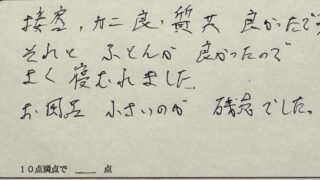 接客、カニ 良、質共 良かったです
それと ふとんが 良かったので
よく 寝むれました
お風呂 小さいのが 残念でした。
10点満点で ___ 点